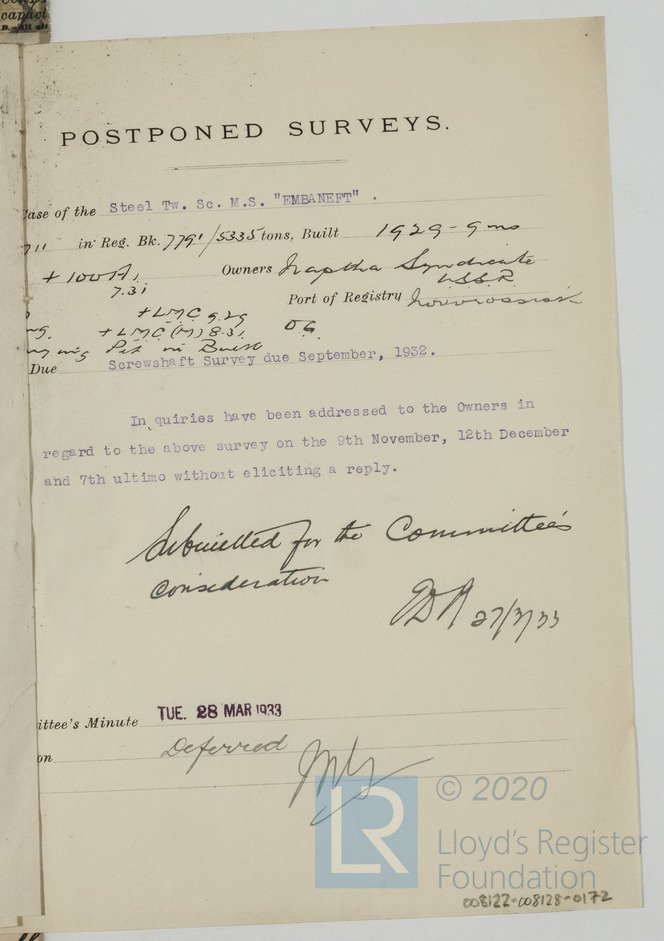 capaci
POSTPONED SURVEYS.
ase of the Steel Tw. Sc. M.S. "EMBANEFT".
in Reg. Bk. 7791/5335 tons, Built 1929-9mo
+100A1 Owners Naptha Syndicate
7.31 U.S.S.R.
Port of Registry Novorossisk
+LMC 9.29
+LMC (M) 8.31 OG.
Due Screwshaft Survey due September, 1932.
In quiries have been addressed to the Owners in
regard to the above survey on the 9th November, 12th December
and 7th ultimo without eliciting a reply.
Submitted for the Committee's
consideration
27/3/33
ittee's Minute TUE. 28 MAR 1933
on Deferred
LR
© 2020
Lloyd's Register
Foundation
008122-008128-0172